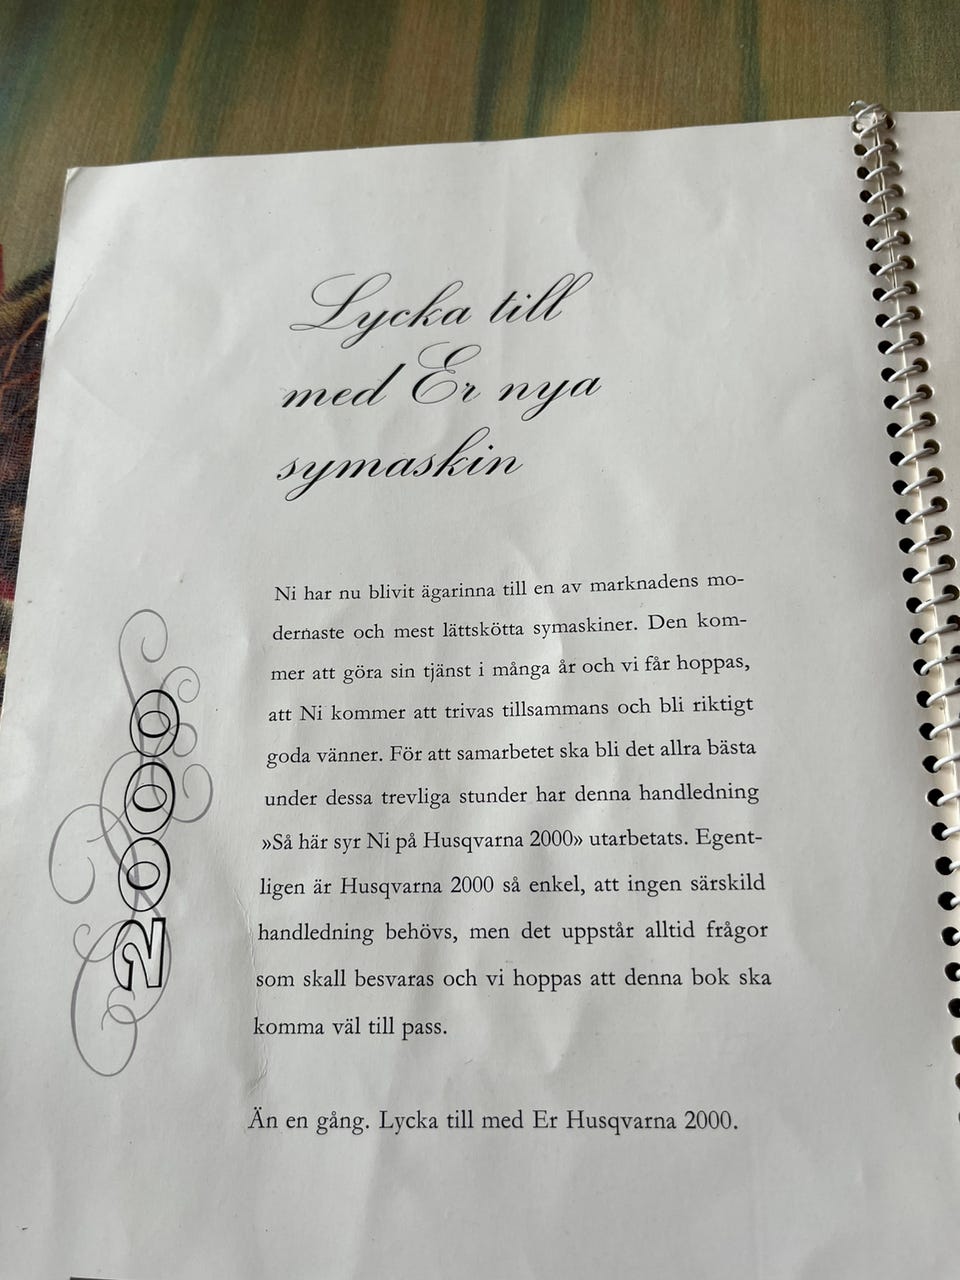 Lycka till
med Er nya
symaskin
Ni har nu blivit ägarinna till en av marknadens mo-
dernaste och mest lättskötta symaskiner. Den kom-
mer att göra sin tjänst i många år och vi får hoppas,
att Ni kommer att trivas tillsammans och bli riktigt
goda vänner. För att samarbetet ska bli det allra bästa
under dessa trevliga stunder har denna handledning
»Så här syr Ni på Husqvarna 2000» utarbetats. Egent-
ligen är Husqvarna 2000 så enkel, att ingen särskild
handledning behövs, men det uppstår alltid frågor
som skall besvaras och vi hoppas att denna bok ska
komma väl till pass.
Än en gång. Lycka till med Er Husqvarna 2000.
2000